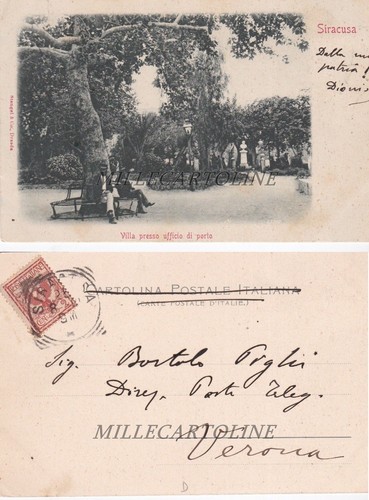 Siracusa
Dalla
patria
Dionis
Stengel & Co., Dresda
MILLECARTOLINE
Villa presso officio di porto
CARTOLINA POSTALE ITALIANA
(CARTE POSTALE D'ITALIE.)
Sig. Bortolo Poglii
Direz. Poste Teleg.
MILLECARTOLINE
Verona
D